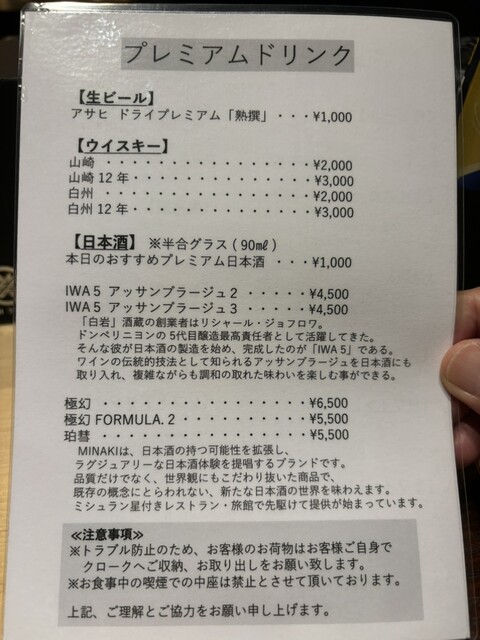 プレミアムドリンク
【生ビール】
アサヒ ドライプレミアム「熟撰」・・・¥1,000
【ウイスキー】
山崎 ・・・・・・・・・・・・・・・¥2,000
山崎 12 年・・・・・・・・・・・・・¥3,000
白州 ・・・・・・・・・・・・・・・¥2,000
白州 12 年・・・・・・・・・・・・・¥3,000
【日本酒】 ※半合グラス ( 90㎖ )
本日のおすすめプレミアム日本酒 ・・・¥1,000
IWA 5 アッサンブラージュ 2 ・・・・・¥4,500
IWA 5 アッサンブラージュ 3 ・・・・・¥4,500
「白岩」酒蔵の創業者はリシャール・ジョフロワ。
ドンペリニヨンの 5 代目醸造最高責任者として活躍してきた。
そんな彼が日本酒の製造を始め、完成したのが「IWA 5」である。
ワインの伝統的技法として知られるアッサンブラージュを日本酒にも
取り入れ、複雑ながらも調和の取れた味わいを楽しむ事ができる。
極幻 ・・・・・・・・・・・・・・・¥6,500
極幻 FORMULA. 2 ・・・・・・・・・・¥5,500
珀彗 ・・・・・・・・・・・・・・・¥5,500
MINAKIは、日本酒の持つ可能性を拡張し、
ラグジュアリーな日本酒体験を提唱するブランドです。
品質だけでなく、世界観にもこだわり抜いた商品で、
既存の概念にとらわれない、新たな日本酒の世界を味わえます。
ミシュラン星付きレストラン・旅館で先駆けて提供が始まっています。
≪注意事項≫
※トラブル防止のため、お客様のお荷物はお客様ご自身で
クロークへご収納、お取り出しをお願い致します。
※お食事中の喫煙での中座は禁止とさせて頂いております。
上記、ご理解とご協力をお願い申し上げます。